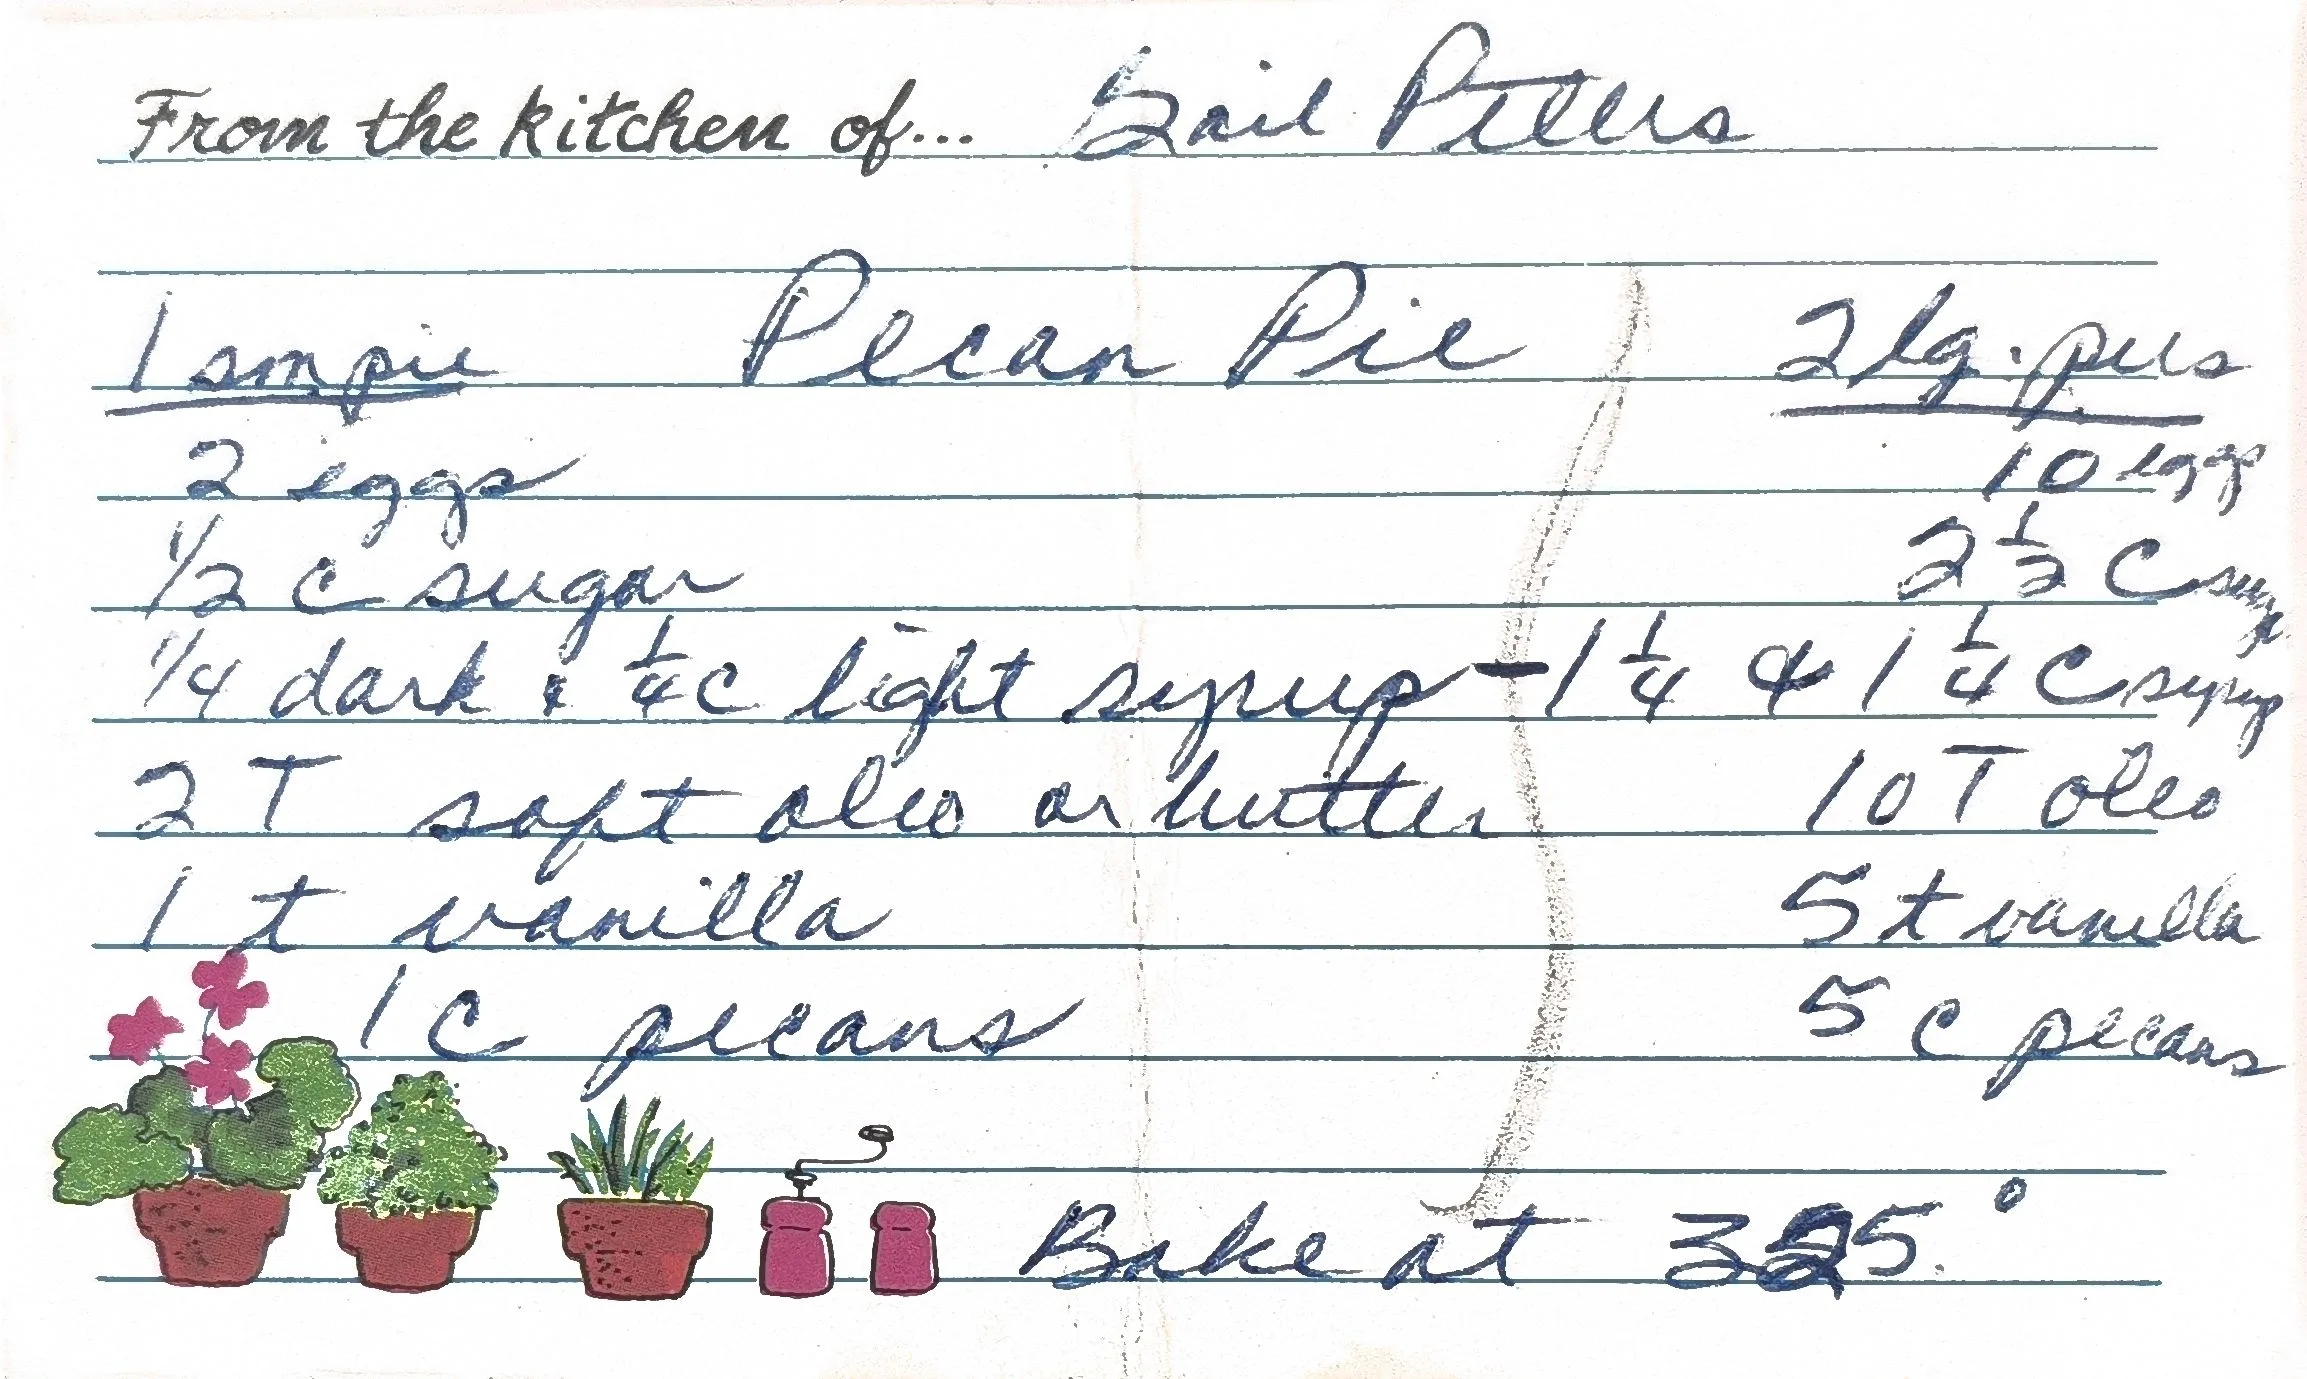 From the kitchen of... Gail Peters
1 sm pie Pecan Pie 2 lg. pies
2 eggs 10 eggs
1/2 c sugar 2 1/2 C sugar
1/4 dark & 1/4 c light syrup - 1 1/4 & 1 1/4 C syrup
2 T soft oleo or butter 10 T oleo
1 t vanilla 5 t vanilla
1 C pecans 5 c pecans
Bake at 325°